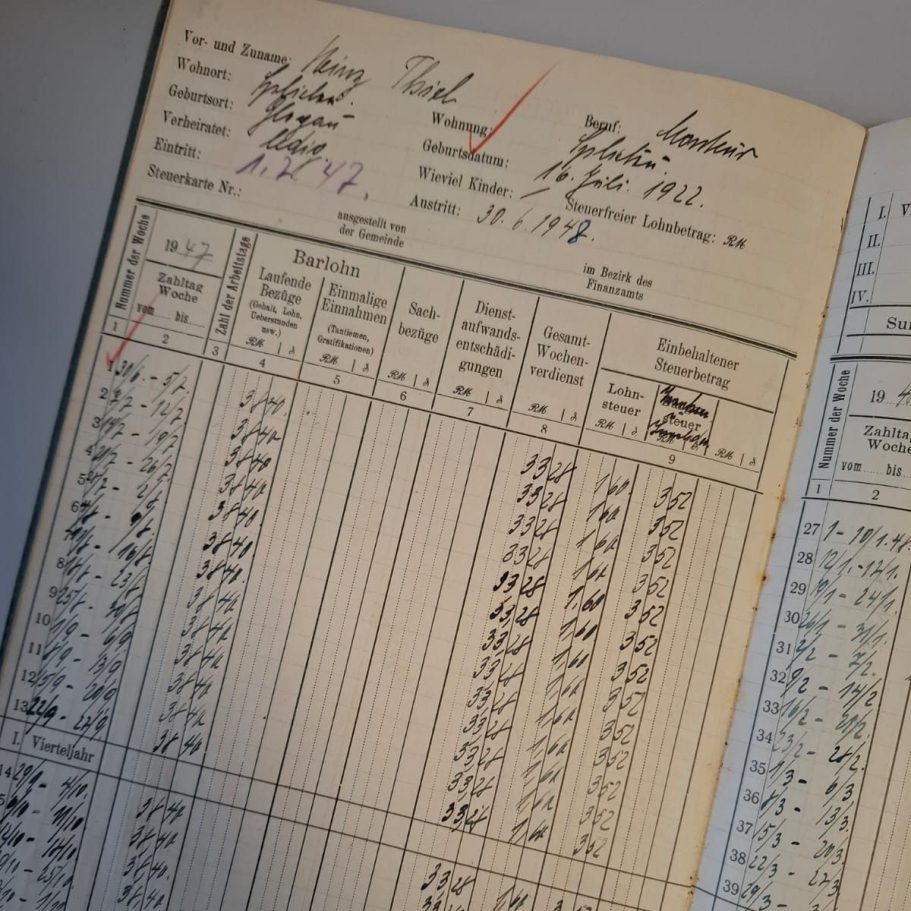 Vor- und Zuname: Heinz Thiel
Wohnort: Wohnung: Beruf: Monteur
Geburtsort: Glogau Geburtsdatum: 16. Juli. 1922.
Verheiratet: ledig Wieviel Kinder: — Steuerfreier Lohnbetrag: RM.
Eintritt: 1.7.47. Austritt: 30.6.1948.
Steuerkarte Nr.: ausgestellt von der Gemeinde im Bezirk des Finanzamts
Nummer der Woche
1947
Zahltag
Woche
vom bis
Zahl der Arbeitstage
Barlohn
Laufende
Bezüge
(Gehalt, Lohn,
Ueberstunden
usw.)
RM. | ₰
Einmalige
Einnahmen
(Tantiemen,
Gratifikationen)
RM. | ₰
Sach-
bezüge
RM. | ₰
Dienst-
aufwands-
entschädi-
gungen
RM. | ₰
Gesamt-
Wochen-
verdienst
RM. | ₰
Einbehaltener
Steuerbetrag
Lohn-
steuer
RM. | ₰
steuer
RM. | ₰
RM. | ₰
1 2 3 4 5 6 7 8 9
1 30/6. - 5/7. 38 40. 33 28 1 60 3 52
2 - 12/7 38 40 33 28 1 60 3 52
3 - 19/7 38 40 33 28 1 60 3 52
4 - 26/7 38 40 33 28 1 60 3 52
5 - 2/8 38 40. 33 28 1 60 3 52
6 - 9/8 38 40 33 28 1 60 3 52
- 16/8 38 40. 33 28 1 60 3 52
8 - 23/8 38 40 33 28 1 60 3 52
9 25/8 - 30/8 38 40 33 28 1 60 3 52
10 1/9 - 6/9 38 40 33 28 1 60 3 52
11 8/9 - 13/9 38 40 33 28 1 60 3 52
12 15/9 - 20/9 38 40 33 28 1 60 3 52
13 22/9 - 27/9 38 40 33 28 1 60 3 52
I. Vierteljahr
14 29/9 - 4/10. 38 40 33 28 1 60 3 52
- 11/10 38 40
- 18/10 38 40
- 25/10 38 40
I. V
II.
III.
IV.
Su
Nummer der Woche
19 4
Zahlta
Woche
vom bis
1 2
27 1 - 10/1.48.
28 12/1. - 17/1.
29 19/1 - 24/1.
30 26/1 - 31/1.
31 2/2 - 7/2.
32 9/2 - 14/2
33 16/2 -
34 23/2 - 28/2.
35 1/3 - 6/3
36 8/3 - 13/3.
37 15/3 - 20/3
38 22/3 - 27/3
39 29/3 -